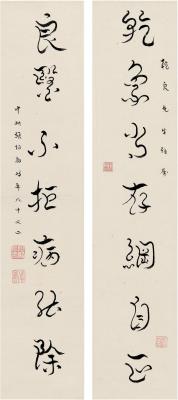 乾良先生雅屬
乾象常存綱自正
良醫不拒病能除
時年八十又二